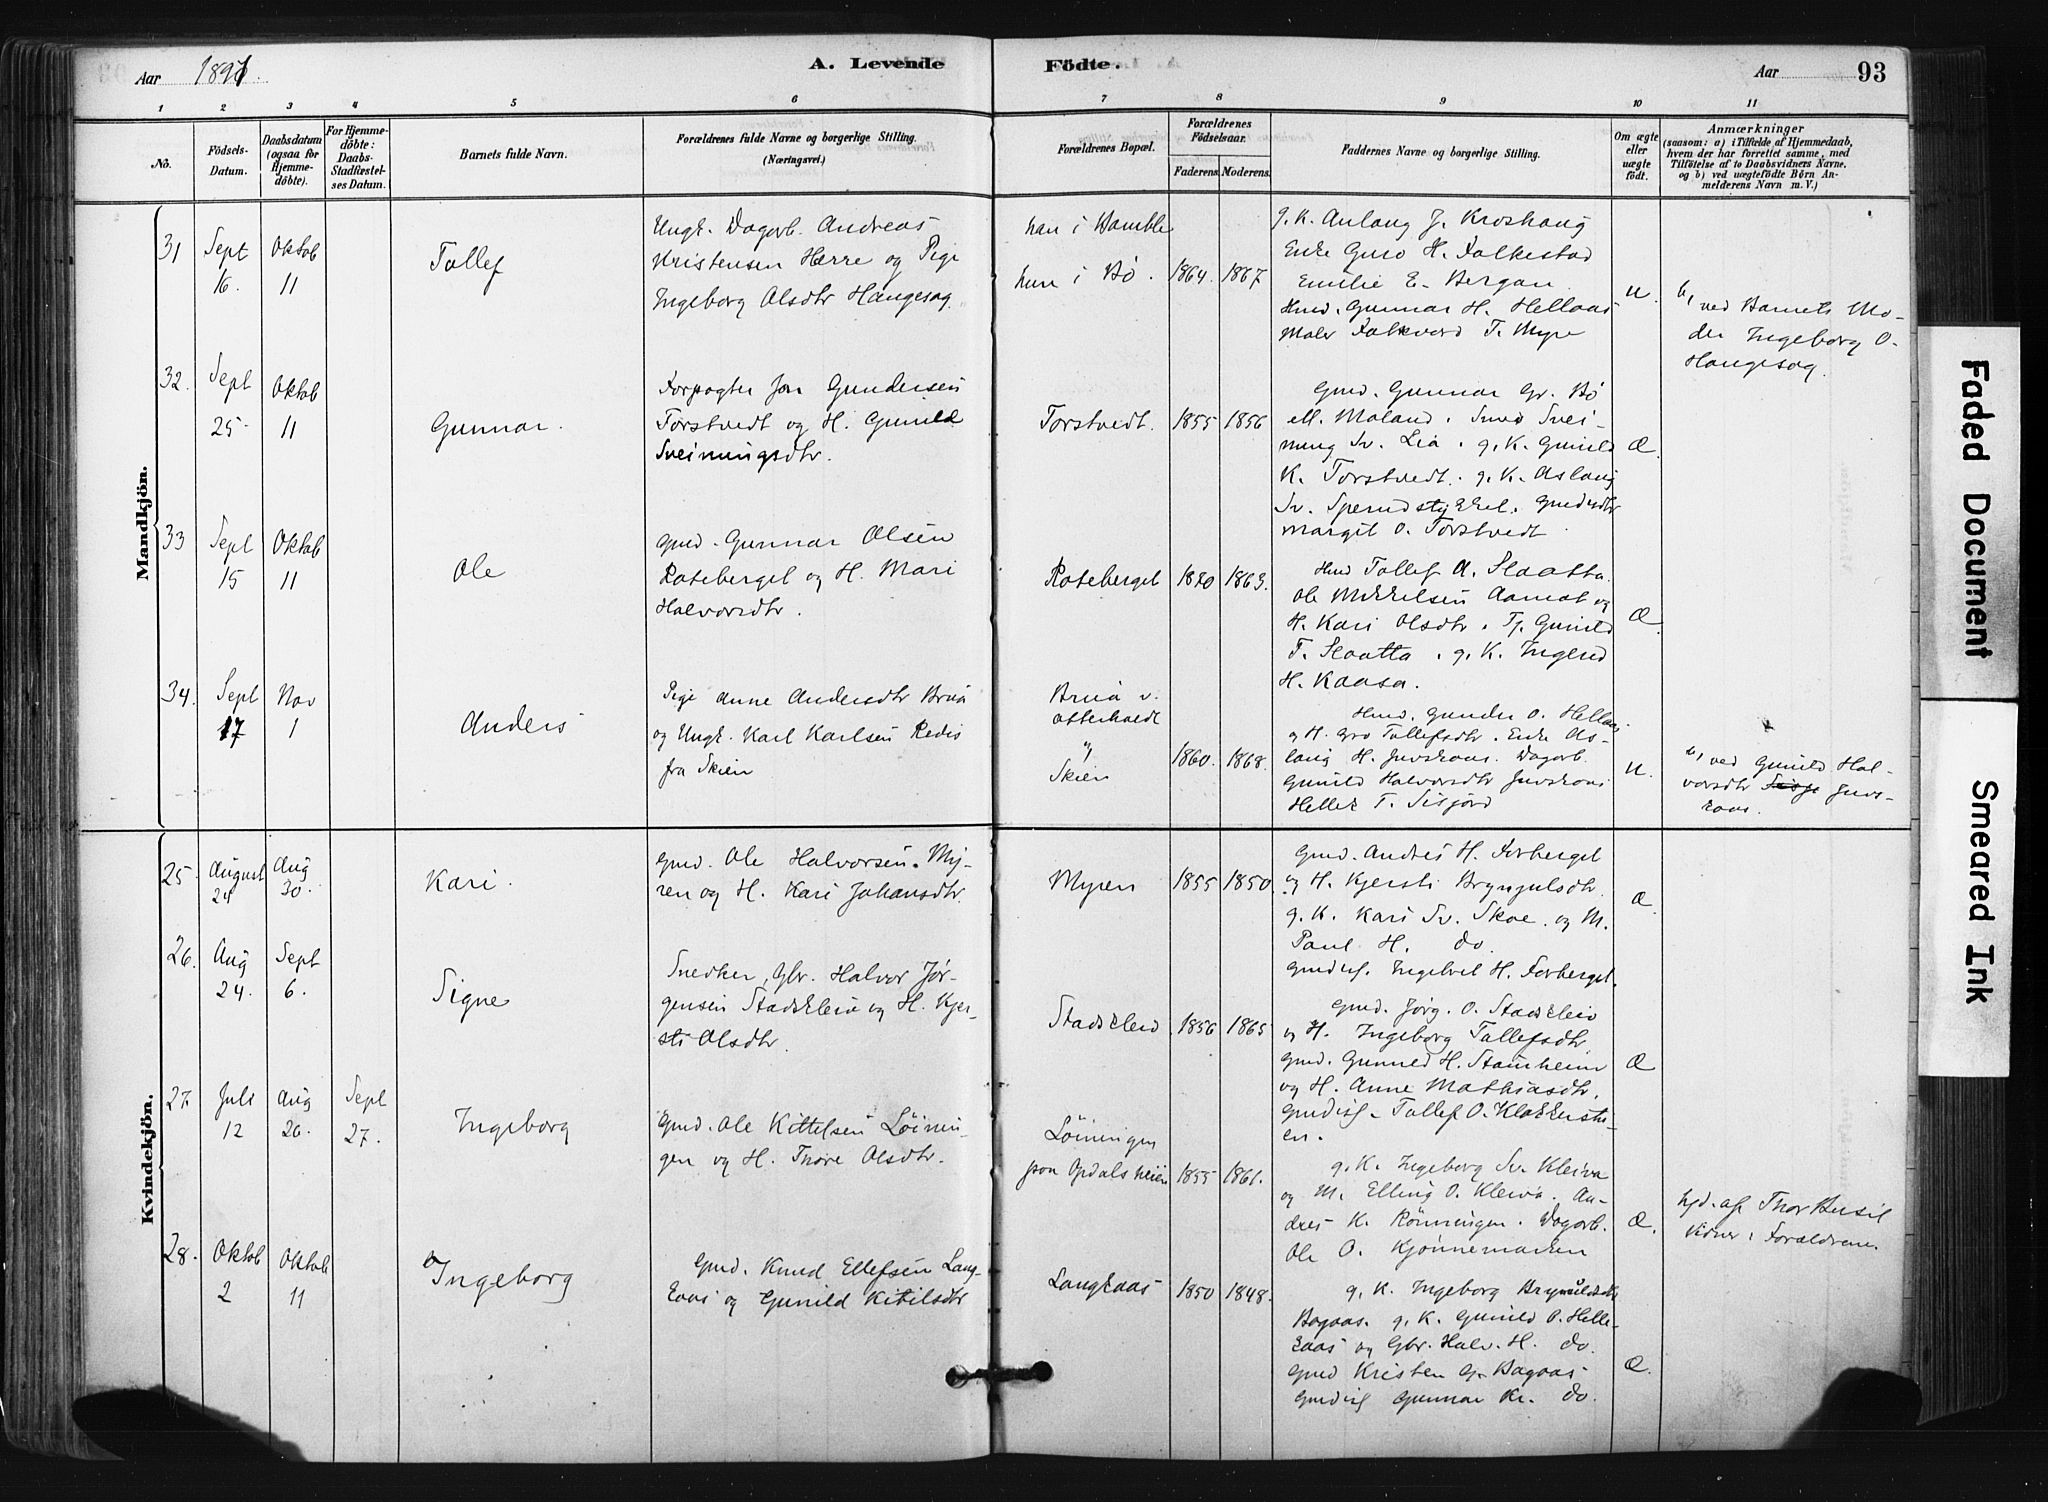 Aar 1891.
A. Levende Födte.
Aar 93
1 2 3 4 5 6 7 8 9 10 11
No.
Födsels-Datum.
Daabsdatum (ogsaa for Hjemme-döbte).
For Hjemme-döbte: Daabs-Stadfæstel-ses Datum.
Barnets fulde Navn.
Forældrenes fulde Navne og borgerlige Stilling. (Næringsvei.)
Forældrenes Bopæl.
Forældrenes Födselsaar.
Faderens. Moderens.
Faddernes Navne og borgerlige Stilling.
Om ægte eller uægte födt.
Anmærkninger
(saasom: a) i Tilfælde af Hjemmedaab,
hvem der har forrettet samme, med
Tilföielse af to Daabsvidners Navne.
og b) ved uægtefödte Börn An-
melderens Navn m. V.)
Mandkjön.
31
Sept 16.
Oktob 11
Tollef
Ungk. Dagarb. Andreas
Kristensen Herre og Pige
Ingeborg Olsdtr Haugesag.
han i Bamble
hun i Bø.
1864. 1867
g. K. Aslaug J. Kroshaug
Enke Guro H. Folkestad
Emilie E. Bergan
Hmd. Gunnar H. Hellaas
Maler Folkvord T. Myre
u.
b, ved Barnets Mo-
der Ingeborg O.
Haugesag.
32.
Sept 25.
Oktob 11
Gunnar.
Forpagter Jon Gundersen
Torstvedt og H. Gunild
Sveinungsdtr.
Torstvedt.
1855 1856
Gmd. Gunnar Gr. Bø
ell. Moland. Smed Svei-
nung Sv. Lia. g. K. Gunild
K. Torstvedt. g. K. Aslaug
Sv. Sperudstykket. Gmdsdtr
Margit O. Torstvedt
Æ.
33
Sept 15
Oktob 11
Ole
Gmd. Gunnar Olsen
Roteberget og H. Mari
Halvorsdtr.
Roteberget
1820 1863.
Hmd Tollef A. Slaatta.
Ole Mikkelsen Aamot og
H. Kari Olsdtr. Tj. Gunild
T. Slaatta. g. K. Ingerid
H. Kaasa.
Æ.
34.
Sept 17
Nov 1
Anders
Pige Anne Andersdtr Bruå
og Ungk. Karl Karlsen Redis
fra Skien
Bruå v.
Otterholdt
og
Skien
1860. 1868.
Hmd. Gunder O. Hellaas
og H. Gro Tollefsdtr. Enke As-
laug H. Juvskaas. Dagarb.
Gunild Halvorsdtr Juvskaas
Hellek T. Sisjord
u.
b, ved Gunild Hal-
vorsdtr Juvs-
kaas.
Kvindekjön.
25.
August 24
Aug 30.
Kari.
Gmd. Ole Halvorsen My-
ren og H. Kari Johansdtr.
Myren
1855 1850
Gmd. Andres H. Forberget
og H. Kjersti Bryngulsdtr.
g. K. Kari Sv. Skoe. og M.
Paul H. do.
Gmdsf. Ingelvil H. Forberget.
Æ.
26.
Aug 24.
Sept 6.
Signe
Snedker, Gbr. Halvor Jør-
gensen Stadskleiv og H. Kjer-
sti Olsdtr.
Stadskleiv
1856 1865
Gmd. Jørg. O. Stadskleiv
og H. Ingeborg Tollefsdtr
Gmd. Gunuld H. Stamheim
og H. Anne Mathiasdtr.
Gmdssf. Tollef O. Klokkerstu-
en.
Æ
27.
Juli 12
Aug 26.
Sept 27.
Ingeborg
Gmd. Ole Kittelsen Löinin-
gen og H. Thore Olsdtr.
Löiningen
paa Opdalsheien
1855 1861.
g. K. Ingeborg Sv. Kleiva
og M. Elling O. Kleiva. An-
dres K. Rönningen. Dagarb.
Ole O. Kjönnemarken
Æ.
hjd. af Thor Busil
Vidner: Forældrene.
28.
Oktob 2
Oktob 11
Ingeborg
Gmd. Knud Ellefsen Lang-
kaas og Gunild Kitilsdtr
Langkaas
1850 1848.
g. K. Ingeborg Brynuldsdtr
Bagaas. g. K. Gunild O. Helle-
kaas og Gbr. Halv. H. do.
Gmd Kristen G. Bagaas
Gmdssf Gunnar Kr. do.
Æ.
Faded Document
Smeared Ink